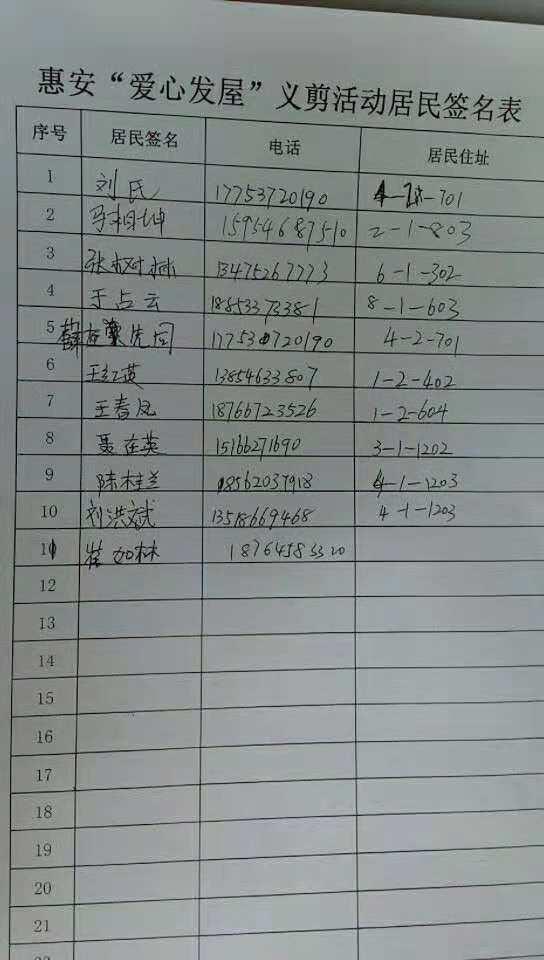 惠安“爱心发屋”义剪活动居民签名表
序号 居民签名 电话 居民住址
1 刘氏 17753720190 4-2-701
2 马相坤 15954687510 2-1-803
3 张树林 13475267773 6-1-302
4 于占云 18853373381 8-1-603
5 薛 先同 17753720190 4-2-701
6 王红英 13854633807 1-2-402
7 王春凤 18766723526 1-2-604
8 聂在英 15166271690 3-1-1202
9 陈桂兰 18562037918 4-1-1203
10 刘洪斌 13518669468 4-1-1203
11 崔如林 18764585520
12
13
14
15
16
17
18
19
20
21